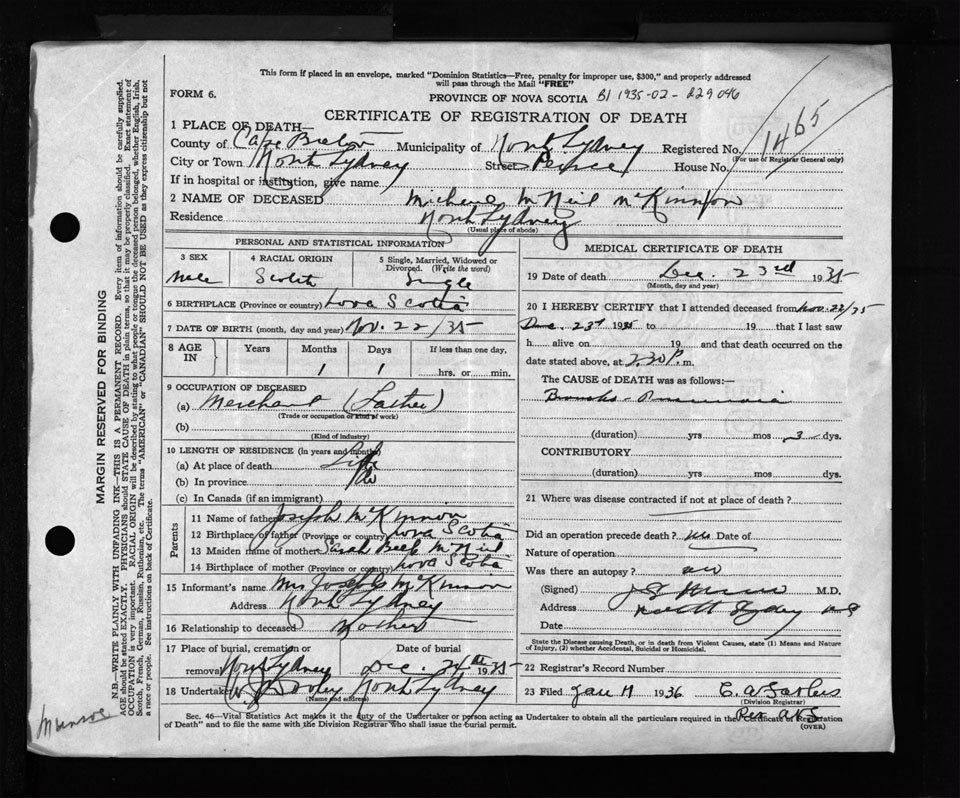 This form if placed in an envelope, marked "Dominion Statistics—Free, penalty for improper use, $300," and properly addressed
will pass through the Mail "FREE"
FORM 6.
PROVINCE OF NOVA SCOTIA B1 1935-02-229096
CERTIFICATE OF REGISTRATION OF DEATH
1465
1 PLACE OF DEATH—
County of Cape Breton Municipality of North Sydney Registered No.
(For use of Registrar General only)
City or Town North Sydney Street Peirce House No.
If in hospital or institution, give name
2 NAME OF DECEASED Michael McNeil McKinnon
Residence North Sydney
(Usual place of abode)
PERSONAL AND STATISTICAL INFORMATION
3 SEX
Male
4 RACIAL ORIGIN
Scotch
5 Single, Married, Widowed or
Divorced. (Write the word)
Single
6 BIRTHPLACE (Province or country) Nova Scotia
7 DATE OF BIRTH (month, day and year) Nov. 22/35
8 AGE IN
Years Months Days If less than one day,
1 1 hrs. or min.
9 OCCUPATION OF DECEASED
(a) Merchant (Father)
(Trade or occupation or kind of work)
(b)
(Kind of industry)
10 LENGTH OF RESIDENCE (in years and months)
(a) At place of death Life
(b) In province Do
(c) In Canada (if an immigrant)
Parents
11 Name of father Joseph McKinnon
12 Birthplace of father (Province or country) Nova Scotia
13 Maiden name of mother Sarah Beck McNeil
14 Birthplace of mother (Province or country) Nova Scotia
15 Informant's name Mrs Joseph McKinnon
Address North Sydney
16 Relationship to deceased Mother
17 Place of burial, cremation or
removal North Sydney
Date of burial
Dec. 24th 1935
18 Undertaker W J Dooley North Sydney
(Name and address)
MEDICAL CERTIFICATE OF DEATH
19 Date of death Dec. 23rd 1935
(Month, day and year)
20 I HEREBY CERTIFY that I attended deceased from Nov. 22/35
Dec. 23rd 1935 to 19 that I last saw
h alive on 19 and that death occurred on the
date stated above, at 2.30 P. m.
The CAUSE OF DEATH was as follows:—
Broncho-Pneumonia
(duration) yrs mos 3 dys.
CONTRIBUTORY
(duration) yrs mos dys.
21 Where was disease contracted if not at place of death?
Did an operation precede death? no Date of
Nature of operation
Was there an autopsy? no
(Signed) M.D.
Address North Sydney NS
Date
State the Disease causing Death, or in death from Violent Causes, state (1) Means and Nature
of Injury, (2) whether Accidental, Suicidal or Homicidal.
22 Registrar's Record Number
23 Filed Jan 11 1936 C. A.
(Division Registrar)
Sec. 46—Vital Statistics Act makes it the duty of the Undertaker or person acting as Undertaker to obtain all the particulars required in the Certificate of Registration
of Death" and to file the same with the Division Registrar who shall issue the burial permit.
(OVER)
MARGIN RESERVED FOR BINDING
N.B.—WRITE PLAINLY WITH UNFADING INK—THIS IS A PERMANENT RECORD. Every item of information should be carefully supplied.
AGE should be stated EXACTLY. PHYSICIANS should STATE CAUSE OF DEATH in plain terms, so that it may be properly classified. Exact statement of
OCCUPATION is very important. RACIAL ORIGIN will be described by stating to what people or tongue the deceased person belonged, whether English, Irish,
Scotch, French, German, Russian, Ruthenian, etc. The terms "AMERICAN" or "CANADIAN" SHOULD NOT BE USED as they express citizenship but not
a race or people. See instructions on back of Certificate.
Munroe